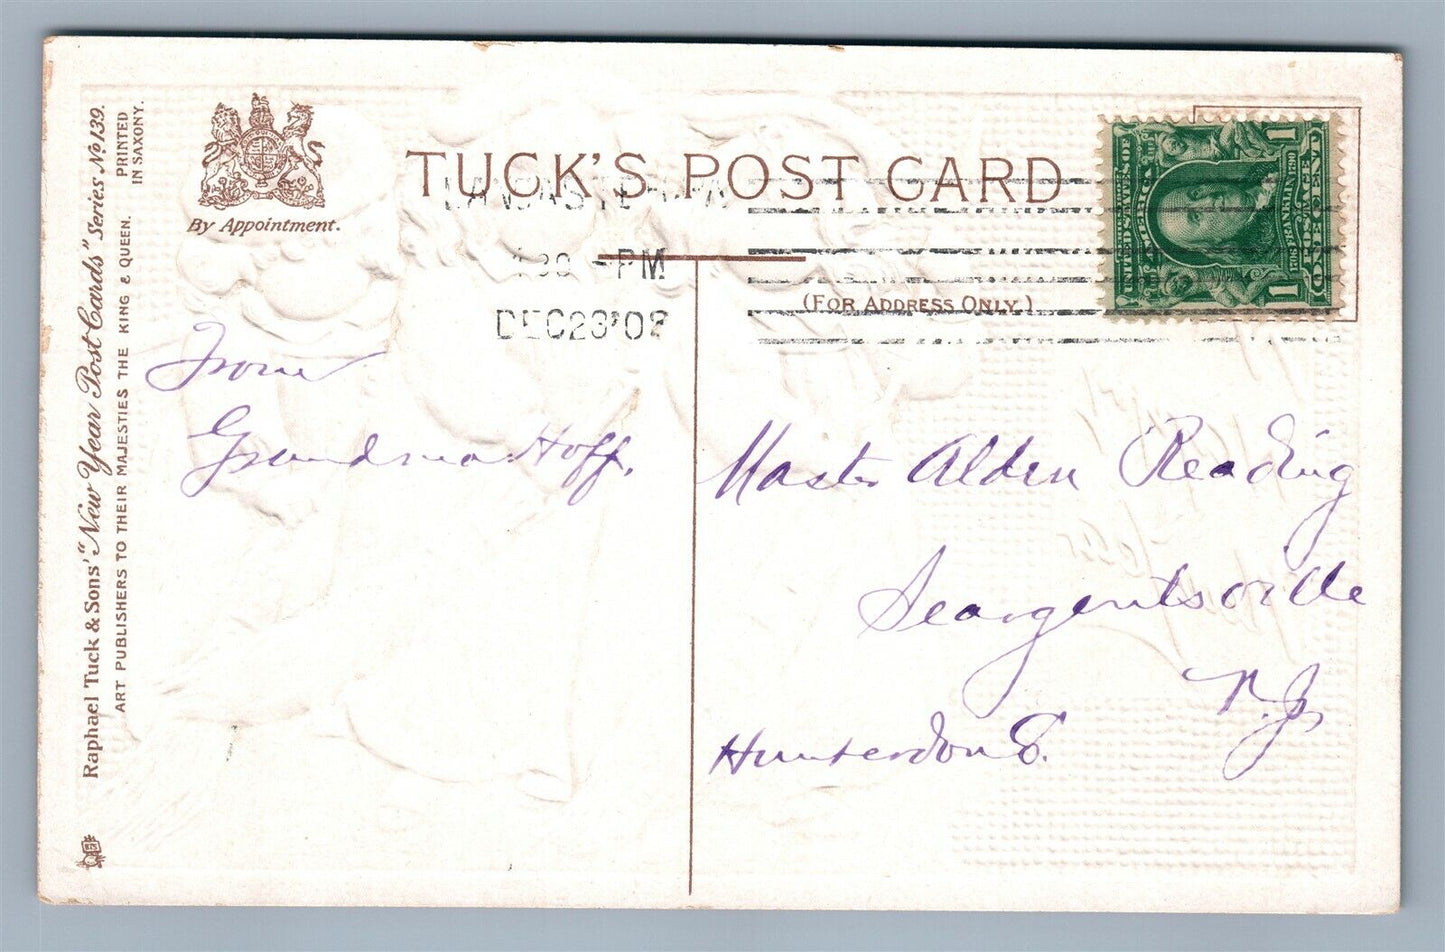 Raphael Tuck & Sons' "New Year Post Cards" Series No 139.
ART PUBLISHERS TO THEIR MAJESTIES THE KING & QUEEN.
PRINTED
IN SAXONY.
By Appointment.
TUCK'S POST CARD
LANCASTER PA
30 - PM
DEC 23 '08
(FOR ADDRESS ONLY.)
UNITED STATES OF
AMERICA
1706 FRANKLIN 1790
POSTAGE
ONE CENT
1 1
From
Grandma Hoff.
Master Alden Reading
Seargentsville
N.J.
Hunterdon Co.